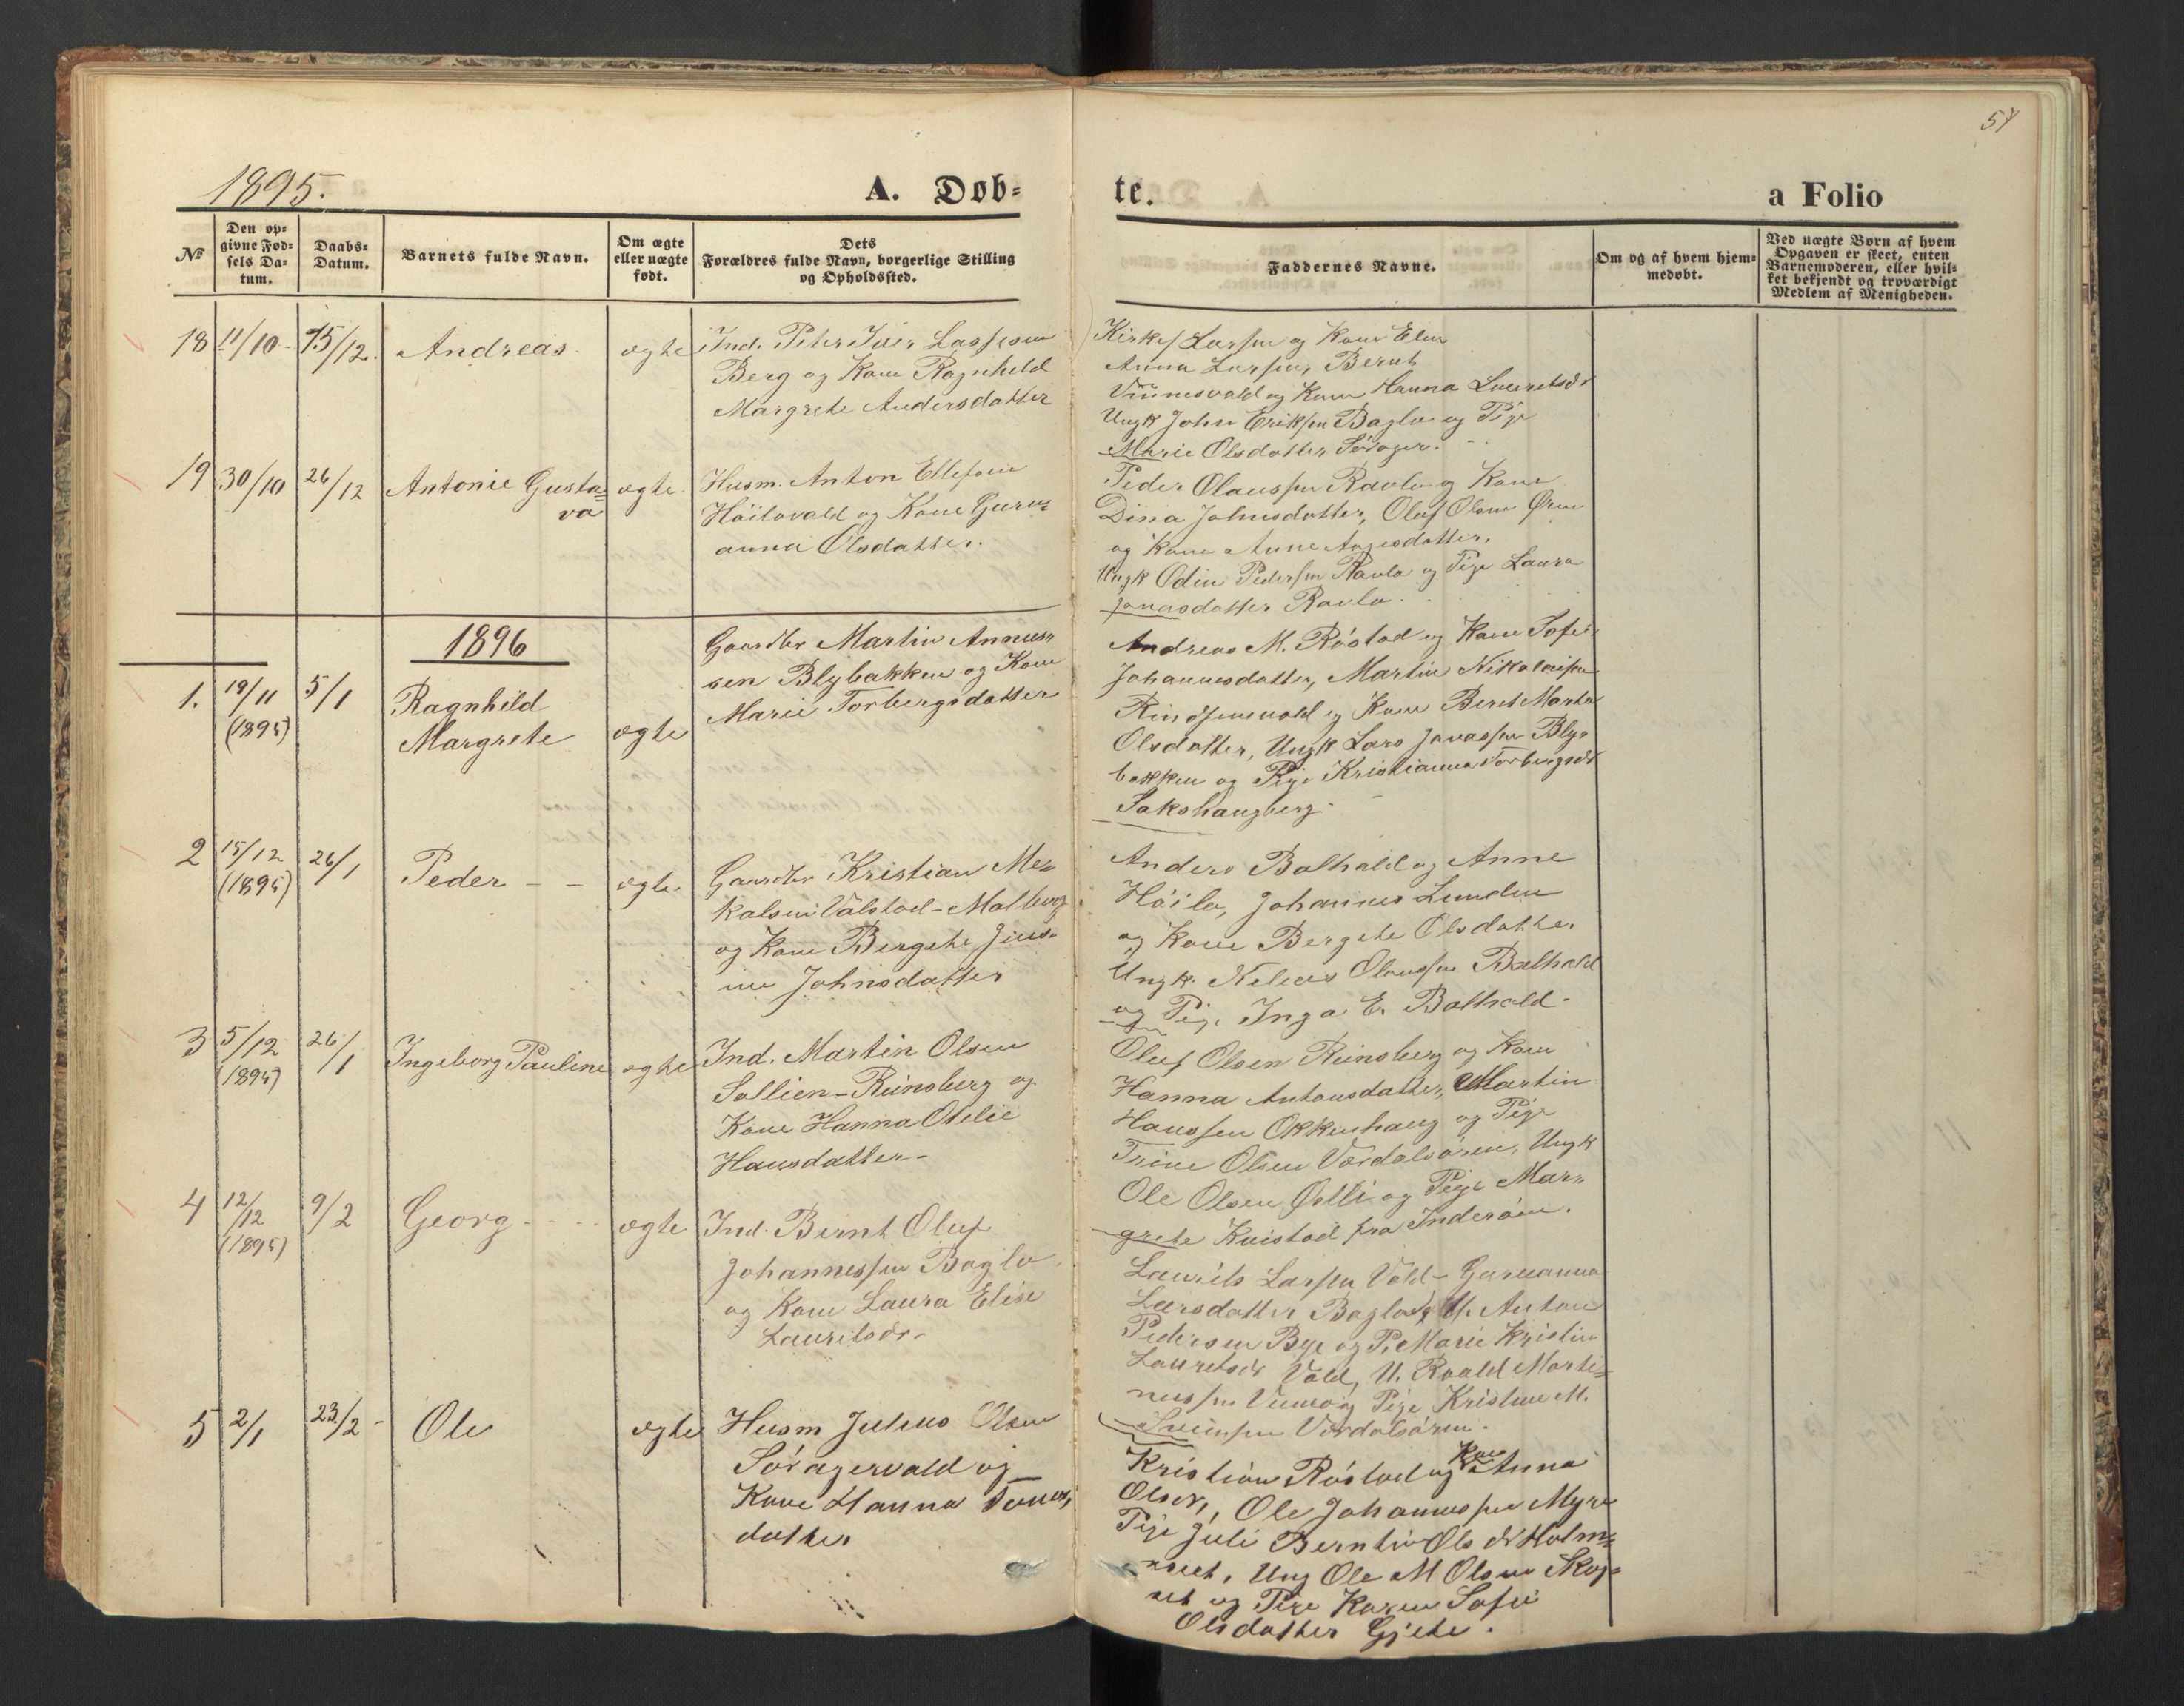 57
1895.
A. Døb=
te.
a Folio
№
Den op=
givne Fød=
sels Da=
tum.
Daabs=
Datum.
Barnets fulde Navn.
Om ægte
eller uægte
født.
Dets
Forældres fulde Navn, borgerlige Stilling
og Opholdssted.
Faddernes Navne.
Om og af hvem hjem=
medøbt.
Ved uægte Børn af hvem
Opgaven er skeet, enten
Barnemoderen, eller hvil=
ket bekjendt og troværdigt
Medlem af Menigheden.
18 11/10 15/12. Andreas. ægte Ind. Peter Lassesen
Berg og Kone Ragnhild
Margrete Andersdatter
Larsen og Kone
Anna Larsen, Bernt
og Kone Hanna
Ungk John Eriksen Baglo og Pige
Marie Olsdatter Søråger.
19 30/10 26/12 Antonie Gusta=
va
ægte Husm. Anton Ellefsen
Høilovald og Kone Guru=
anna Olsdatter.
Peder Olaussen Ravlo og Kone
Dina Johnsdatter, Oluf Olsen
og Kone Anne
Ungk Odin Pedersen Ravlo og Pige Laura
Jonasdatter Ravlo.
1896
1. 19/11
(1895)
5/1 Ragnhild
Margrete
ægte
Gaardbr Martin
sen Blybakken og Kone
Marie Torbergsdatter
Andreas M. Røstad og Kone Sofie
Johannesdatter, Martin Nikolaisen
og Kone Beret Marta
Olsdatter, Ungk Lars Jonassen Bly=
bakken og Pige Kristianna Torbergsdr
Sakshaugberg.
2 15/12
(1895)
26/1 Peder - - ægte Gaardbr Kristian Me=
kalsen Valstad-Molberg
og Kone Bergete
Johnsdatter
Anders Balhald og Anne
Høilo, Johannes Lunden
og Kone Bergete Olsdatter
Ungk. Olaussen Balhald
og Pige Inga E. Balhald-
3 5/12
(1895)
26/1 Ingeborg Pauline ægte Ind. Martin Olsen
Sollien-Rinsberg og
Kone Hanna Otelie
Hansdatter-
Oluf Olsen Rinsberg og Kone
Hanna Antonsdatter, Martin
Hanssen Okkenhaug og Pige
Trine Olsen Værdalsøren, Ungk
Ole Olsen og Pige Mar=
grete Kvistad fra Inderøen.
4 12/12
(1895)
9/2 Georg - - ægte Ind. Bernt Oluf
Johannessen Baglo
og Kone Laura Elise
Lauritsdr-
Laurits Larsen Vald- Guruanna
Larsdatter Baglo, U. Anton
Pedersen Bye og P. Marie Kristin
Lauritsdr Vald, U. Roald Marti=
nussen og Pige Kristine M.
Værdalsøren.
5 2/1 23/2 - Ole ægte Husm Julius Olsen
Søragervald og
Kone Hanna
datter
Kristian Røstad og Kone Anna
Olsdr, Ole Johannessen Myr
Pige Juli Berntin Olsdr Holm=
Ung Ole M Olsen Skog=
og Pige Karen Sofie
Olsdatter Gjete.